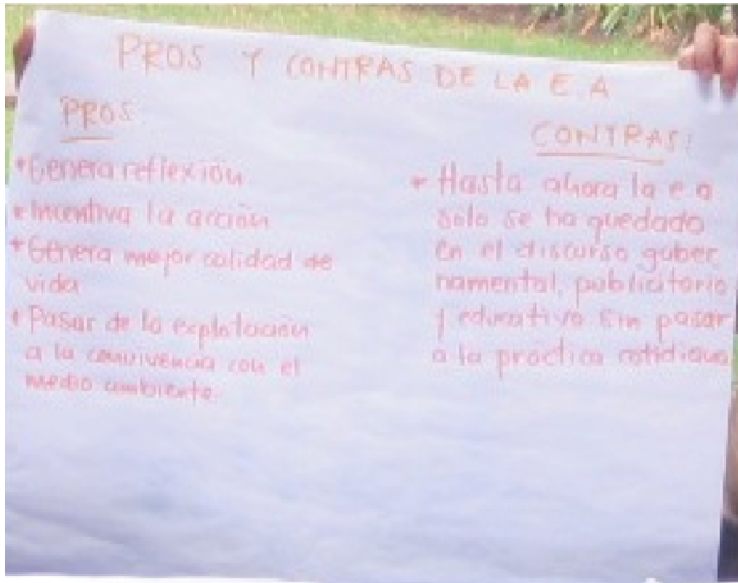 PROS Y CONTRAS DE LA E.A
PROS:
*Genera reflexión
*Incentiva la acción
*Genera mejor calidad de
vida
*Pasar de la explotación
a la convivencia con el
medio ambiente.
CONTRAS:
*Hasta ahora la e a
solo se ha quedado
en el discurso guber
namental, publicitario
y educativo sin pasar
a la práctica cotidiana